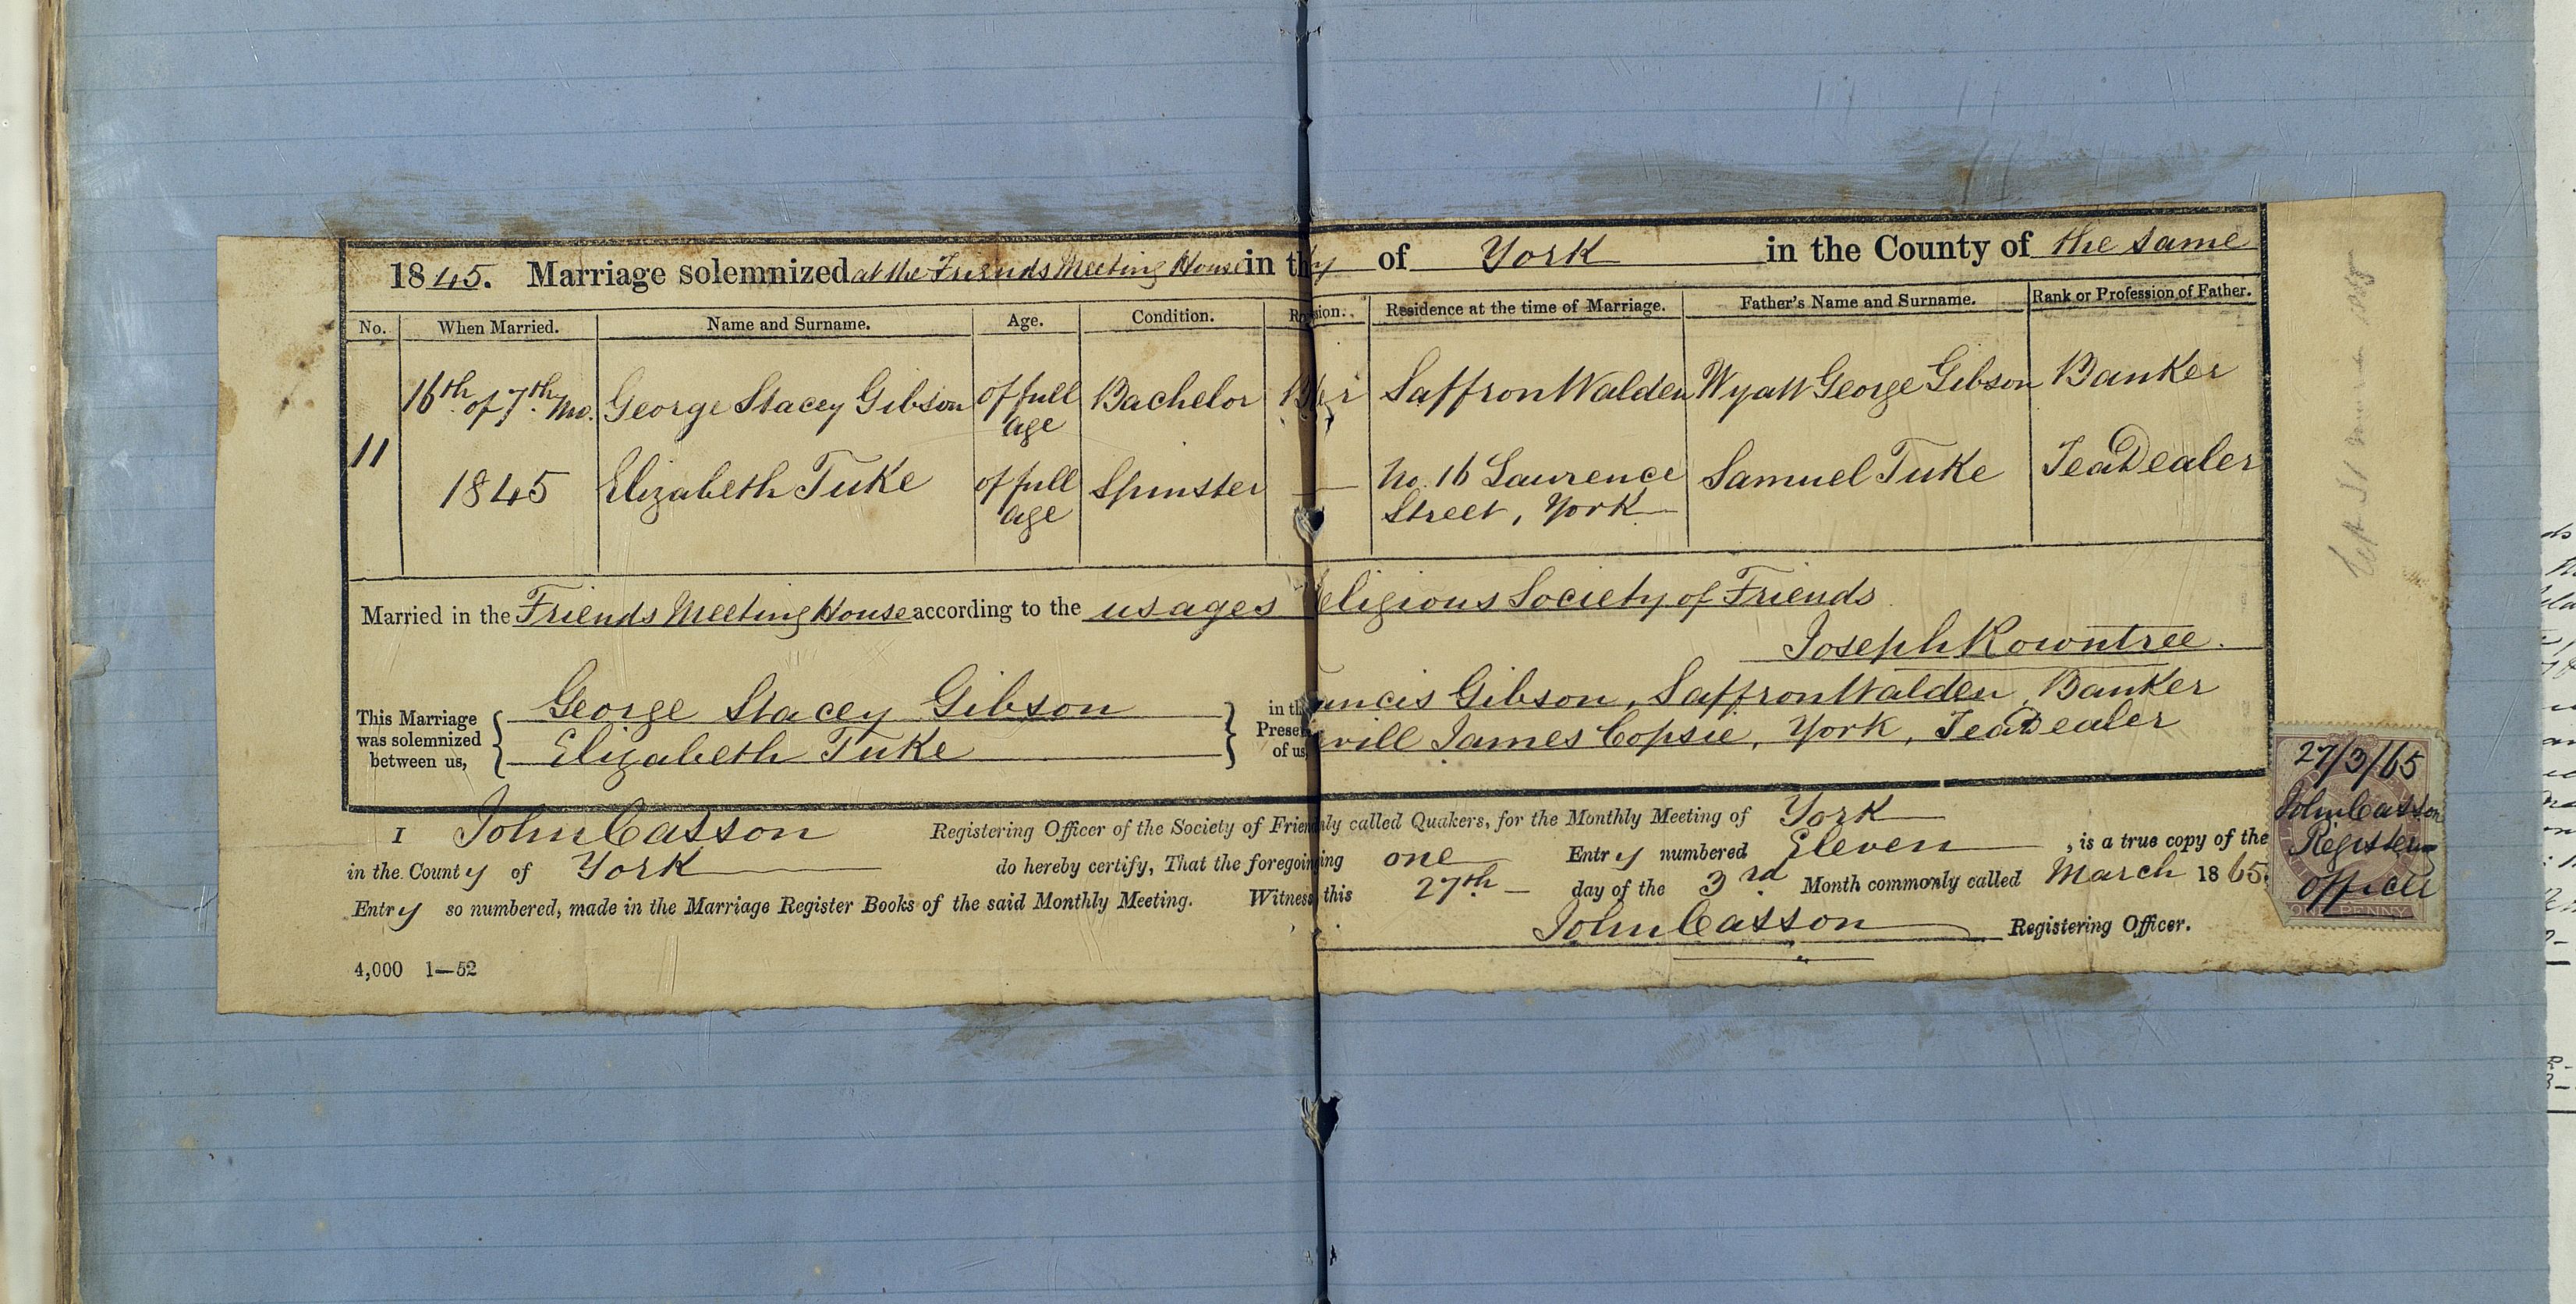 1845. Marriage solemnized at the Friends Meeting House in th y of York in the County of the same
No. When Married. Name and Surname. Age. Condition. Residence at the time of Marriage. Father's Name and Surname. Rank or Profession of Father.
11
16th of 7th Mo. George Stacey Gibson of full age Bachelor Saffron Walden Wyatt George Gibson Banker
1845 Elizabeth Tuke of full age Spinster — No. 16 Laurence Street, York Samuel Tuke Tea Dealer
Married in the Friends Meeting House according to the usages eligious Society of Friends
Joseph Rowntree.
This Marriage was solemnized between us, { George Stacey Gibson } in th Presen of us, ancis Gibson, Saffron Walden, Banker
Elizabeth Tuke will James Copsie, York, Tea Dealer
I John Casson Registering Officer of the Society of Frien nly called Quakers, for the Monthly Meeting of York
in the County of York do hereby certify, That the foregoing one Entry numbered Eleven, is a true copy of the
Entry so numbered, made in the Marriage Register Books of the said Monthly Meeting. Witness this 27th day of the 3rd Month commonly called March 1865.
John Casson Registering Officer.
4,000 1—52
27/3/65
John Casson
Registering
officer
ONE PENNY